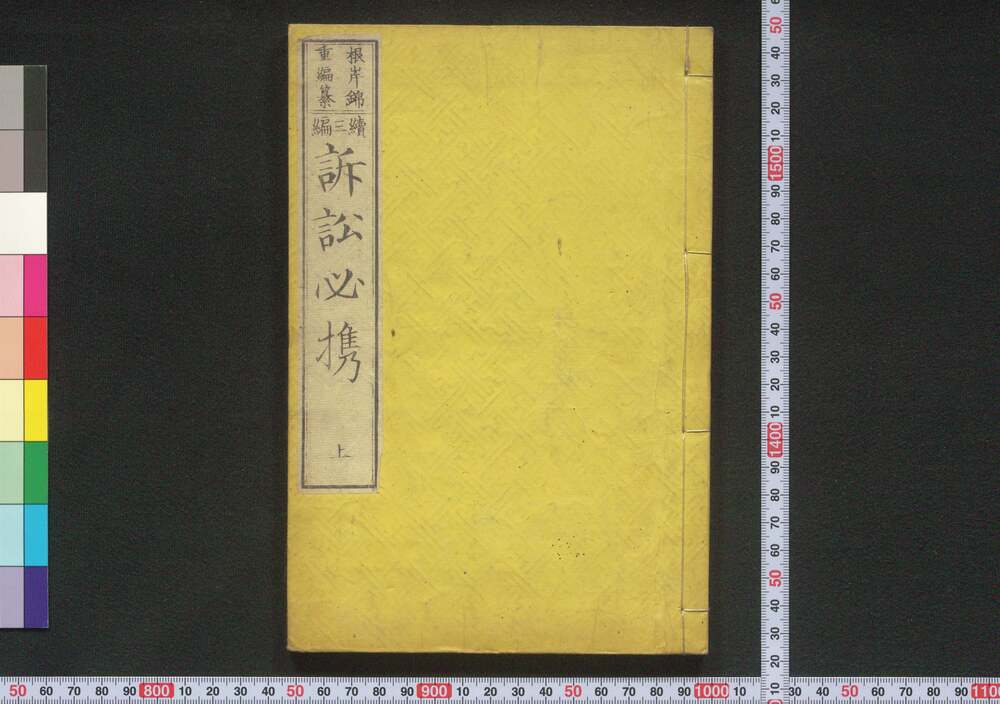 根岸錦
重編纂
續三編
訴訟必携
上
50 60 70 80 90 800 10 20 30 40 50 60 70 80 90 900 10 20 30 40 50 60 70 80 90 1000 10
30 40 50 60 70 80 90 1100
50
40
30
20
10
1500
90
80
70
60
50
40
30
20
10
1400
90
80
70
60
50
40
30
20
10